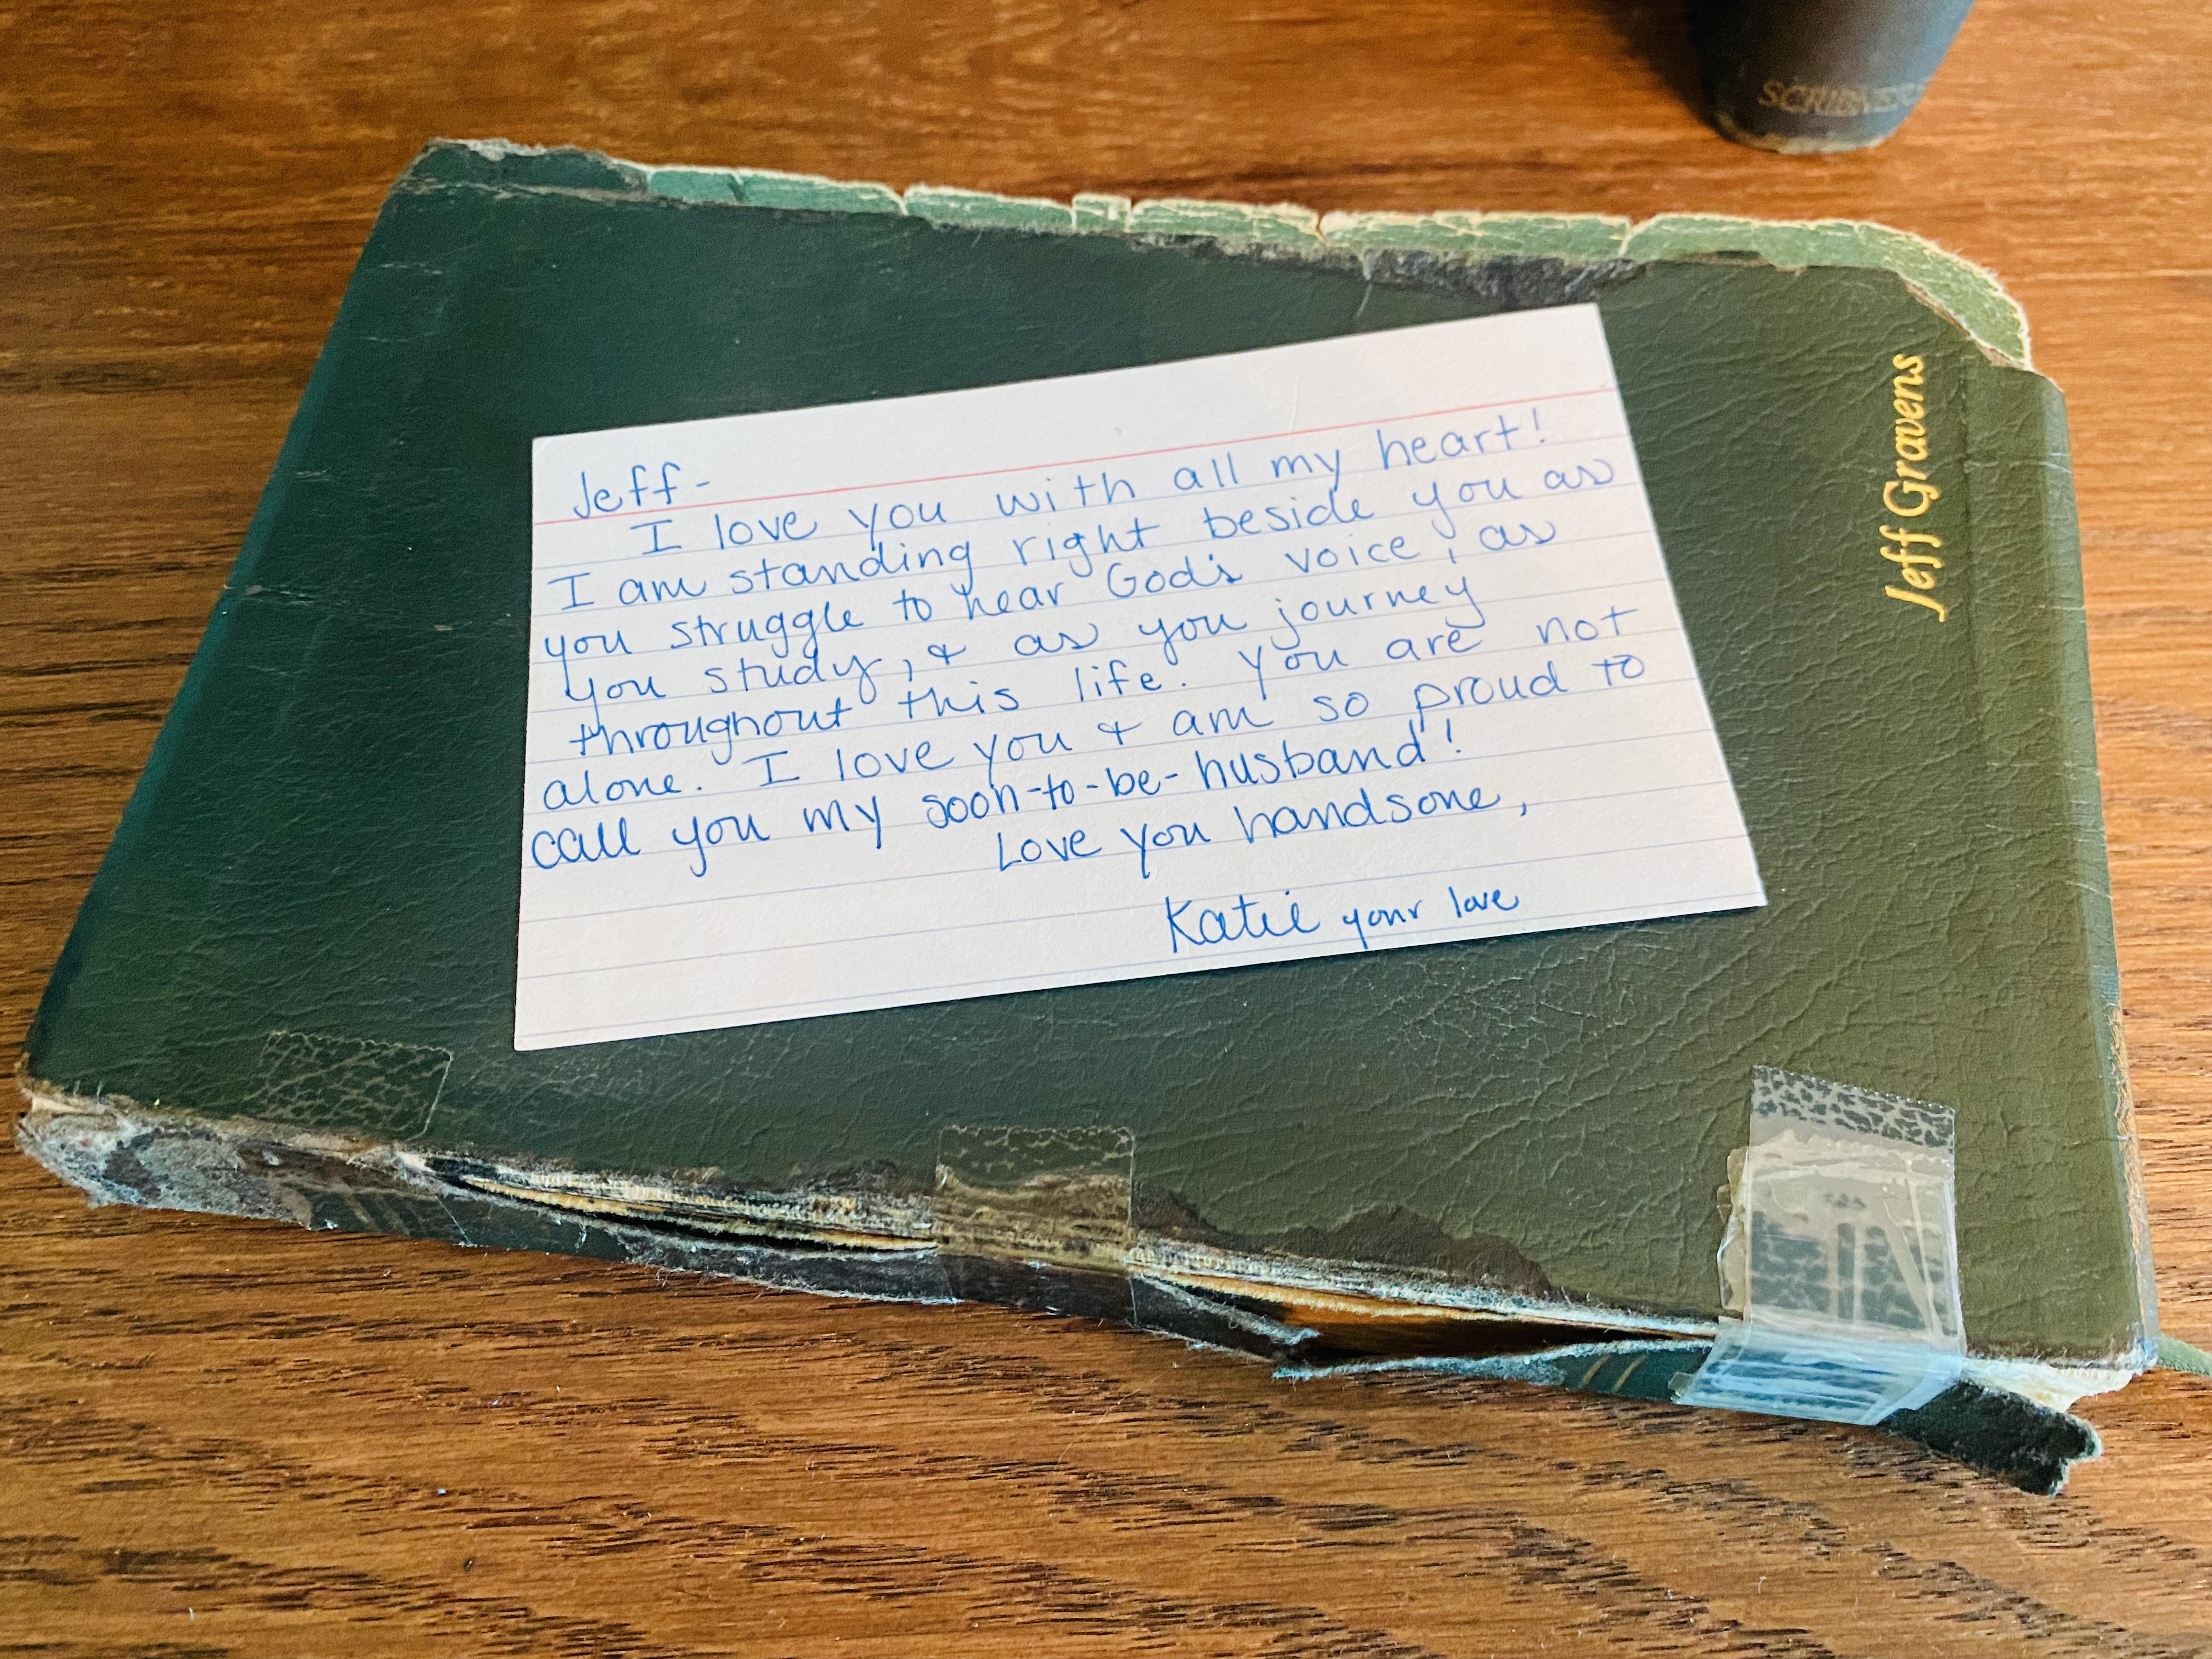 SCRIBNER
Jeff Gravens
Jeff-
I love you with all my heart!
I am standing right beside you as
you struggle to hear God's voice, as
you study, & as you journey
throughout this life. You are not
alone. I love you & am so proud to
call you my soon-to-be-husband!
Love you handsome,
Katie your love